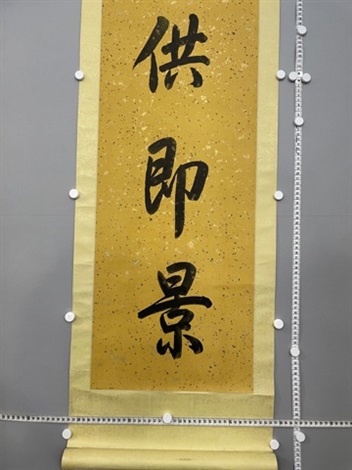 供即景